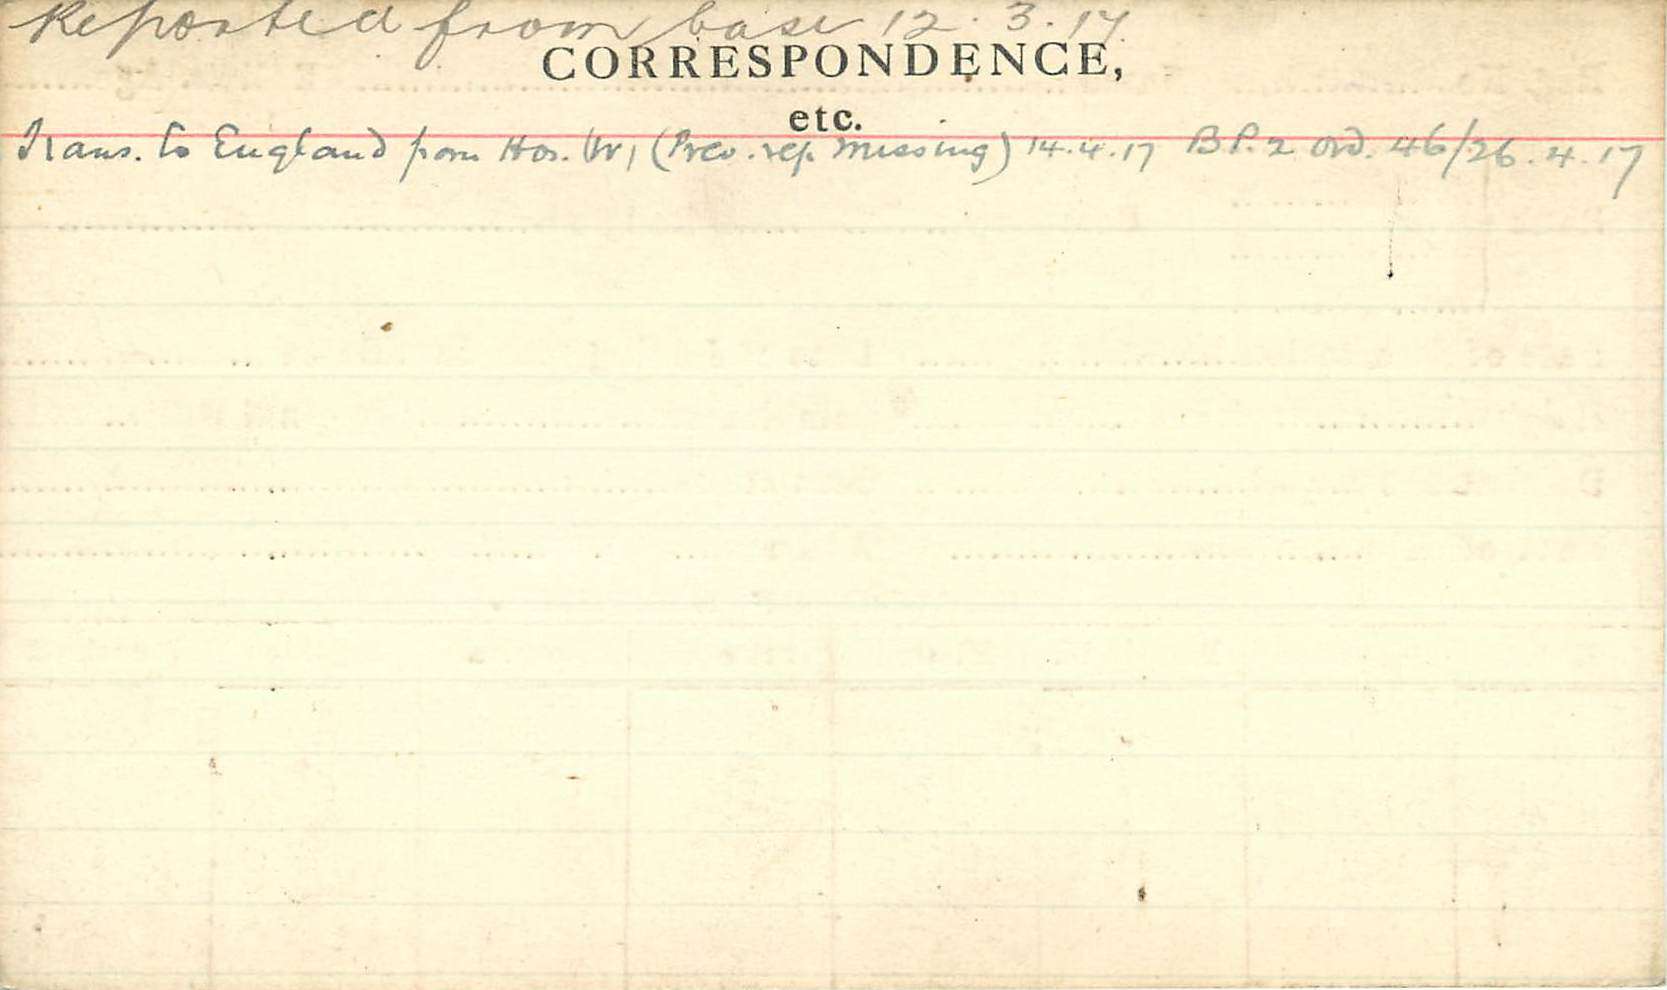 Reported from base 12.3.17.
CORRESPONDENCE,
etc.
Trans. to England from Hos. (Prev. rep. missing) 14.4.17 B P. 2 Ord. 46/26.4.17